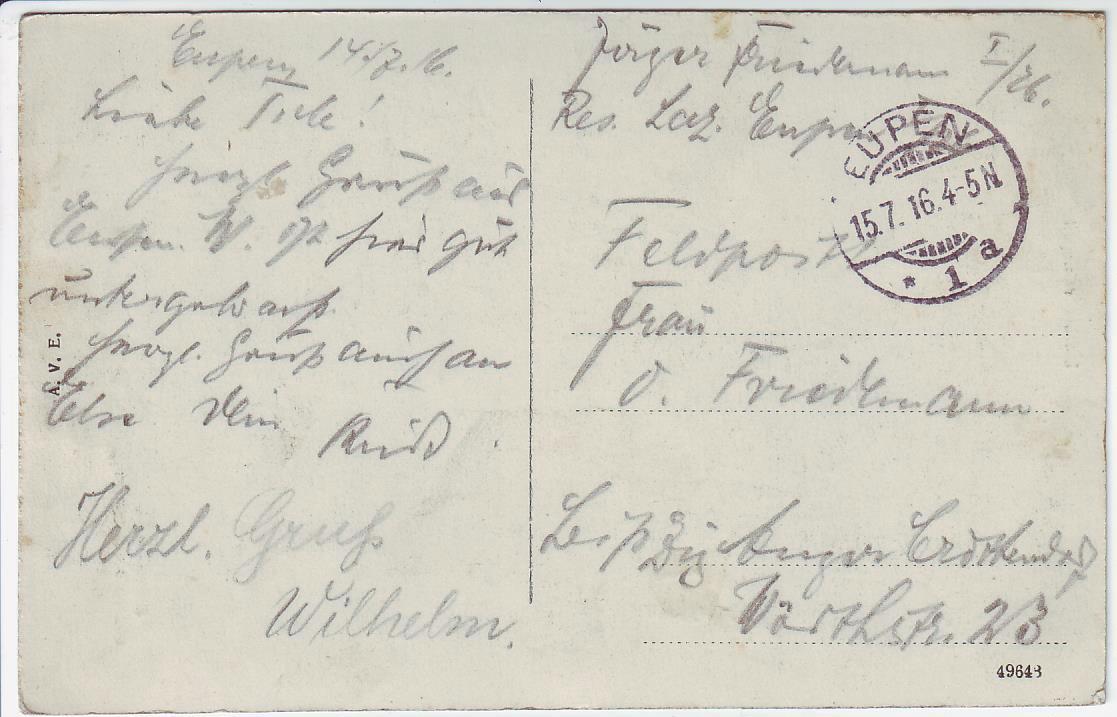 Eupen, 14/7. 16.
Liebe Tele!
Herzl. Gruß aus
Eupen. hier gut
untergebracht.
Herzl. Gruß auch an
Else Dein
Kurt.
Herzl. Gruß
Wilhelm.
A. V. E.
Jäger Friedemann I/26.
Res. Laz. Eupen
EUPEN
15.7.16.4-5N
* 1 a
Feldpost
Frau
O. Friedemann
Leipzig Anger Crottendorf
Wörthstr. 23
49643